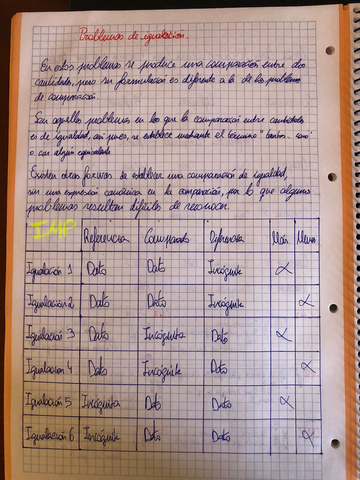 Problemas de igualación.
En estos problemas se produce una comparación entre dos
cantidades, pero su formulación es diferente a la de los problemas
de comparación.
Son aquellos problemas en los que la comparación entre cantidades
es de igualdad, así pues, se establece mediante el término "tantos.. como"
o con algún equivalente
Existen otras formas de establecer una comparación de igualdad,
sin una expresión canónica en la comparación, por lo que algunos
problemas resultan difíciles de reconocer.
IMP Referencia Comparado Diferencia Más Menos
Igualación 1 Dato Dato Incógnita X
Igualación 2 Dato Dato Incógnita X
Igualación 3 Dato Incógnita Dato X
Igualación 4 Dato Incógnita Dato X
Igualación 5 Incógnita Dato Dato X
Igualación 6 Incógnita Dato Dato X